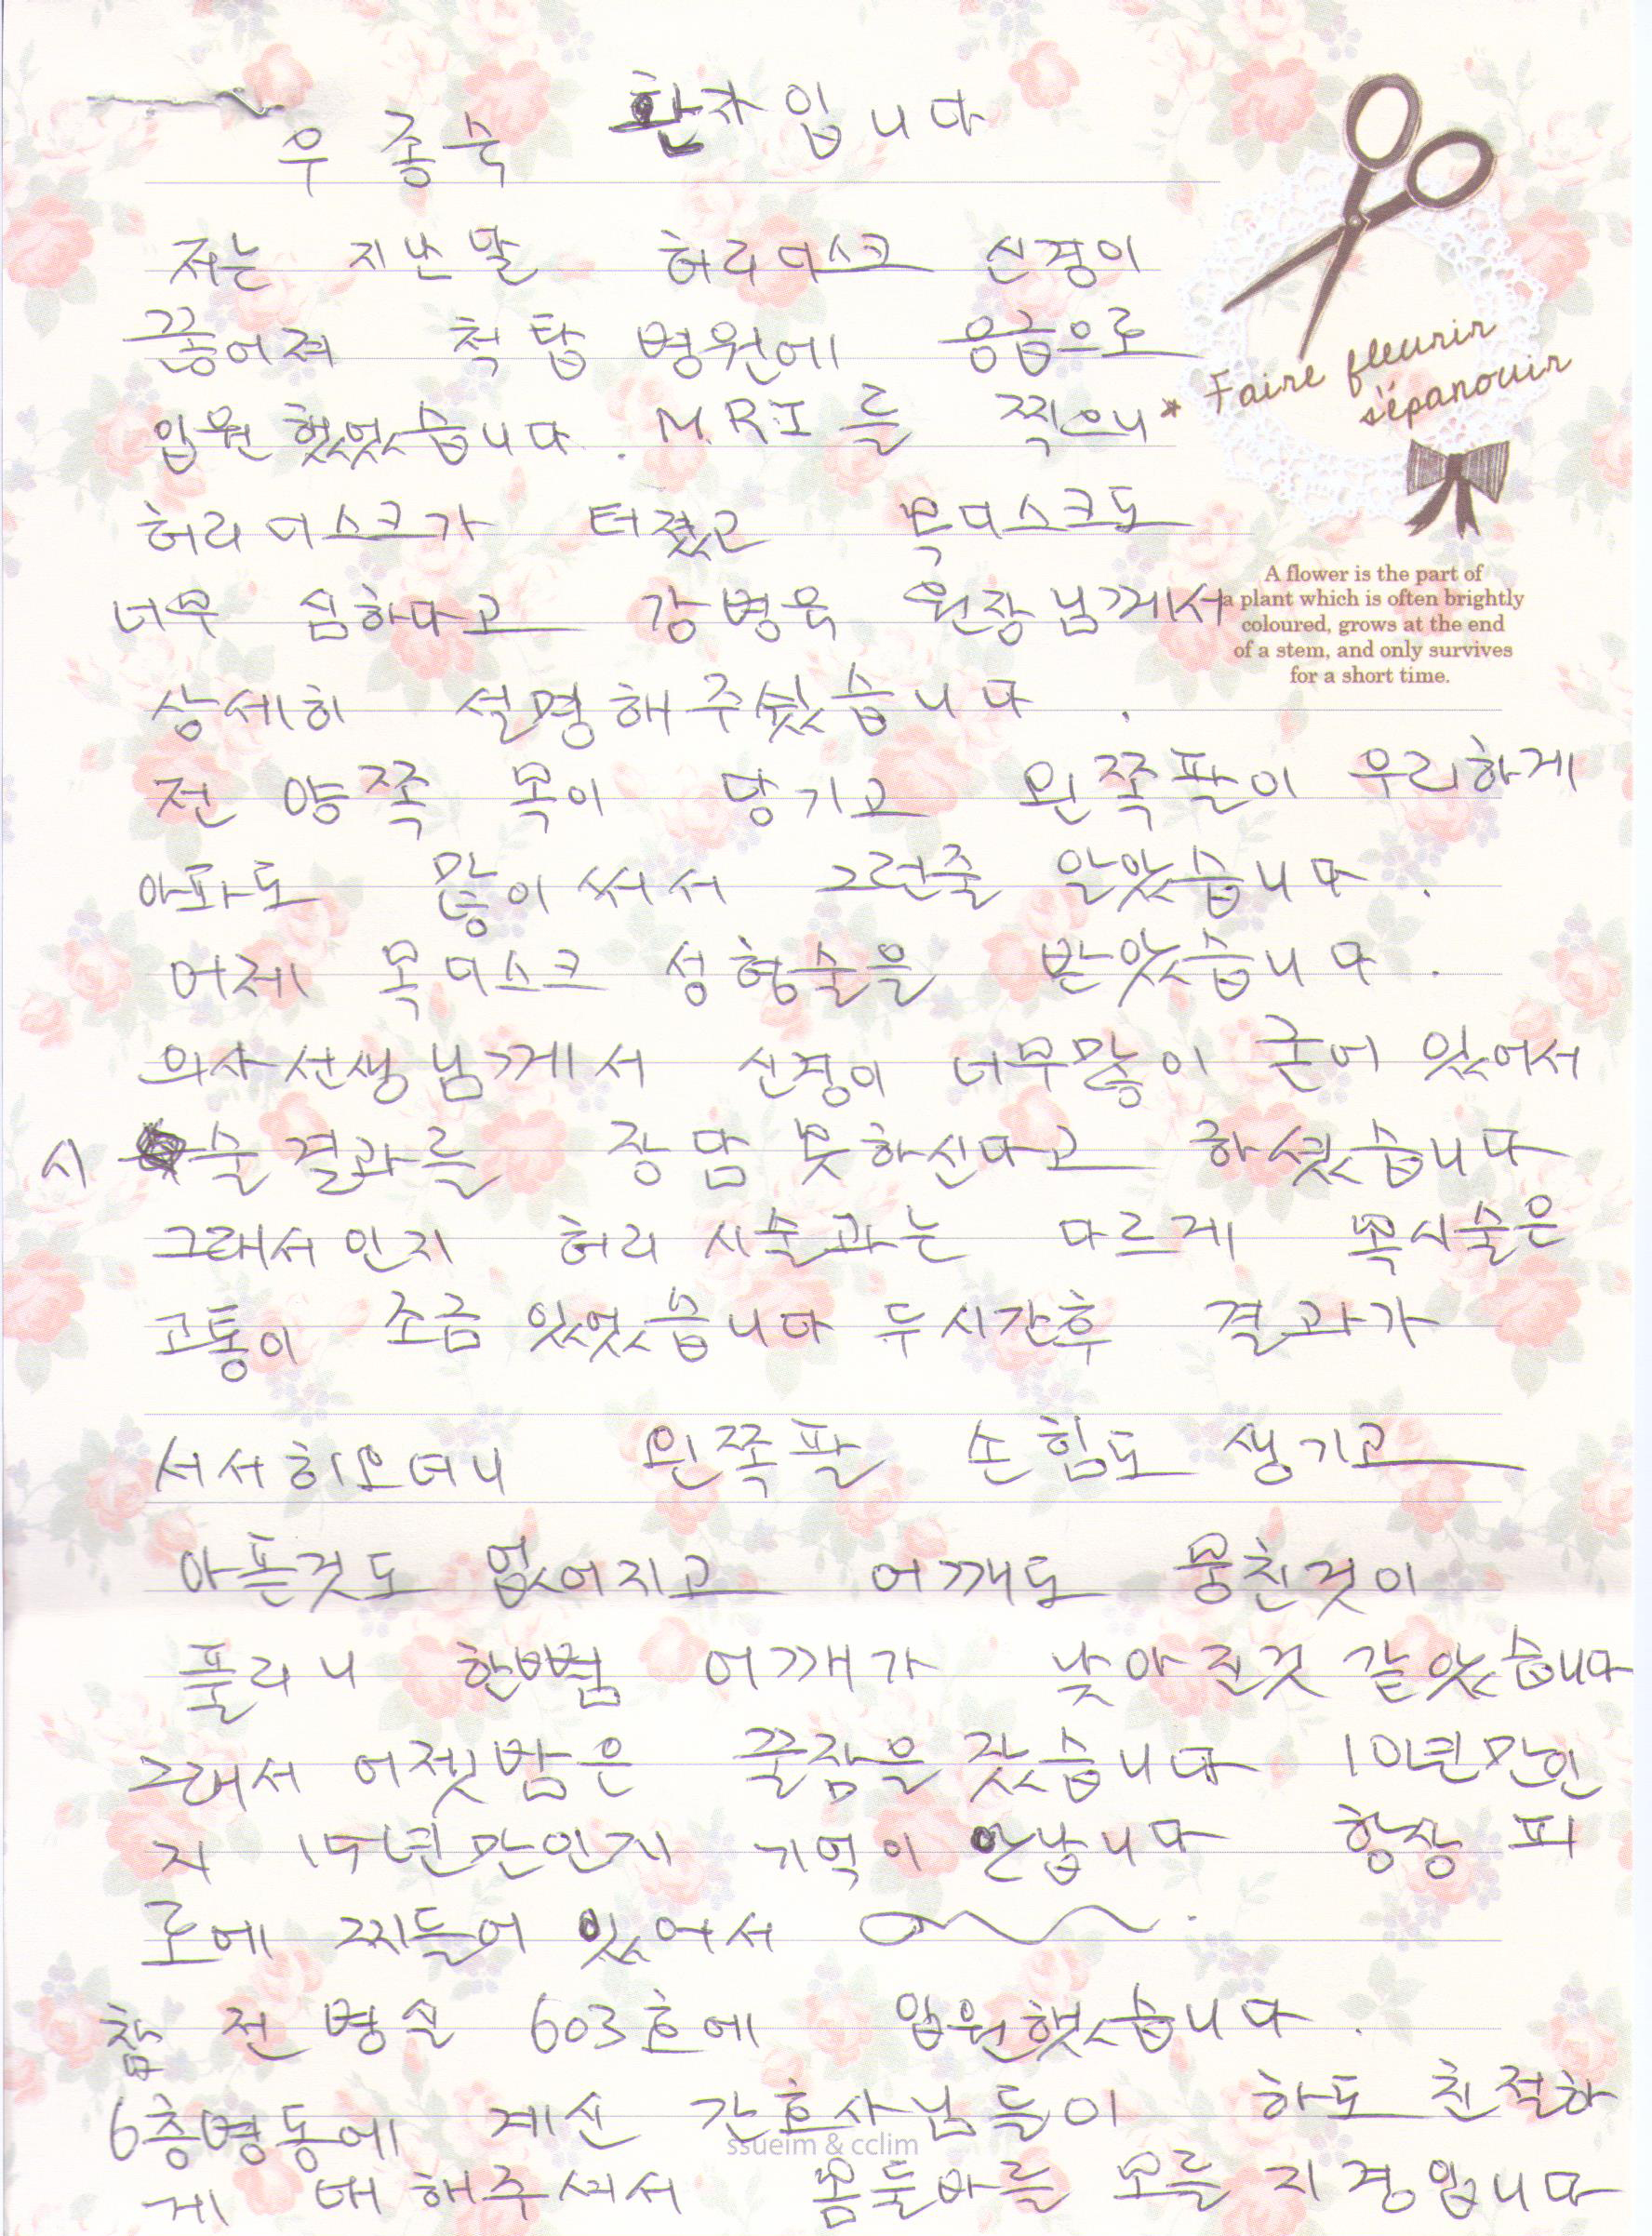 우종숙 환자입니다
저는 지난 말 허리디스크 신경이
끊어져 척탑병원에 응급으로
입원했었습니다. M.R.I를 찍으니
* Faire fleurir
s'épanouir
허리디스크가 터졌고 목디스크도
너무 심하다고 강병욱 원장님께서
A flower is the part of
a plant which is often brightly
coloured, grows at the end
of a stem, and only survives
for a short time.
상세히 설명해주셨습니다.
전 양쪽 목이 당기고 왼쪽팔이 우리하게
아파도 많이써서 그런줄 알았습니다.
어제 목디스크 성형술을 받았습니다.
의사선생님께서 신경이 너무많이 굳어 있어서
시술결과를 장담 못하신다고 하셨습니다
그래서인지 허리시술과는 다르게 목시술은
고통이 조금 있었습니다 두시간후 결과가
서서히오더니 왼쪽팔 손힘도 생기고
아픈것도 없어지고 어깨도 뭉친것이
풀리니 한뼘 어깨가 낮아진것 같았습니다
그래서 어젯밤은 꿀잠을 잤습니다 10년만인
지 15년만인지 기억이 안납니다 항상 피
로에 찌들어 있어서
참 전 병실 603호에 입원했습니다.
6층병동에 계신 간호사님들이 하도 친절하
게 대해주셔서 몸둘바를 모를 지경입니다
ssueim & cclim